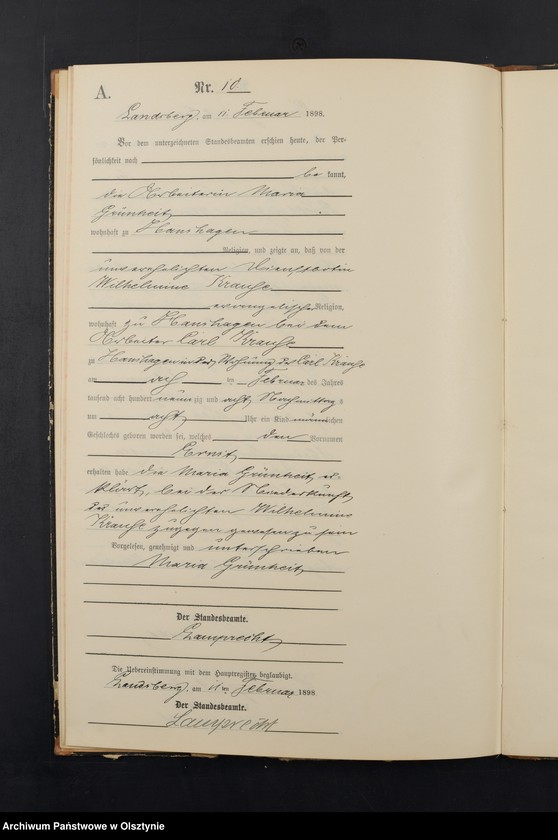 A.
Nr. 10.
Landsberg, am 11 Februar 1898.
Vor dem unterzeichneten Standesbeamten erschien heute, der Per-
sönlichkeit nach
be kannt,
die Arbeiterin Maria
Grünheit
wohnhaft zu Hanshagen
Religion, und zeigte an, daß von der
unverehelichten Dienstbotin
Wilhelmine Krause
evangelischer Religion,
wohnhaft zu Hanshagen bei dem
Arbeiter Carl Krause
zu Hanshagen in der Wohnung des Carl Krause
am ten Februar des Jahres
tausend acht hundert neunzig und acht Nachmittag s
um acht Uhr ein Kind männlichen
Geschlechts geboren worden sei, welches den Vornamen
Ernst
erhalten habe die Maria Grünheit er-
klärt, bei der Niederkunft
der unverehelichten Wilhelmine
Krause zugegen gewesen zu sein
Vorgelesen, genehmigt und unterschrieben
Maria Grünheit
Der Standesbeamte.
Lamprecht
Die Uebereinstimmung mit dem Hauptregister beglaubigt.
Landsberg, am 11 ten Februar 1898
Der Standesbeamte.
Lamprecht
Archiwum Państwowe w Olsztynie